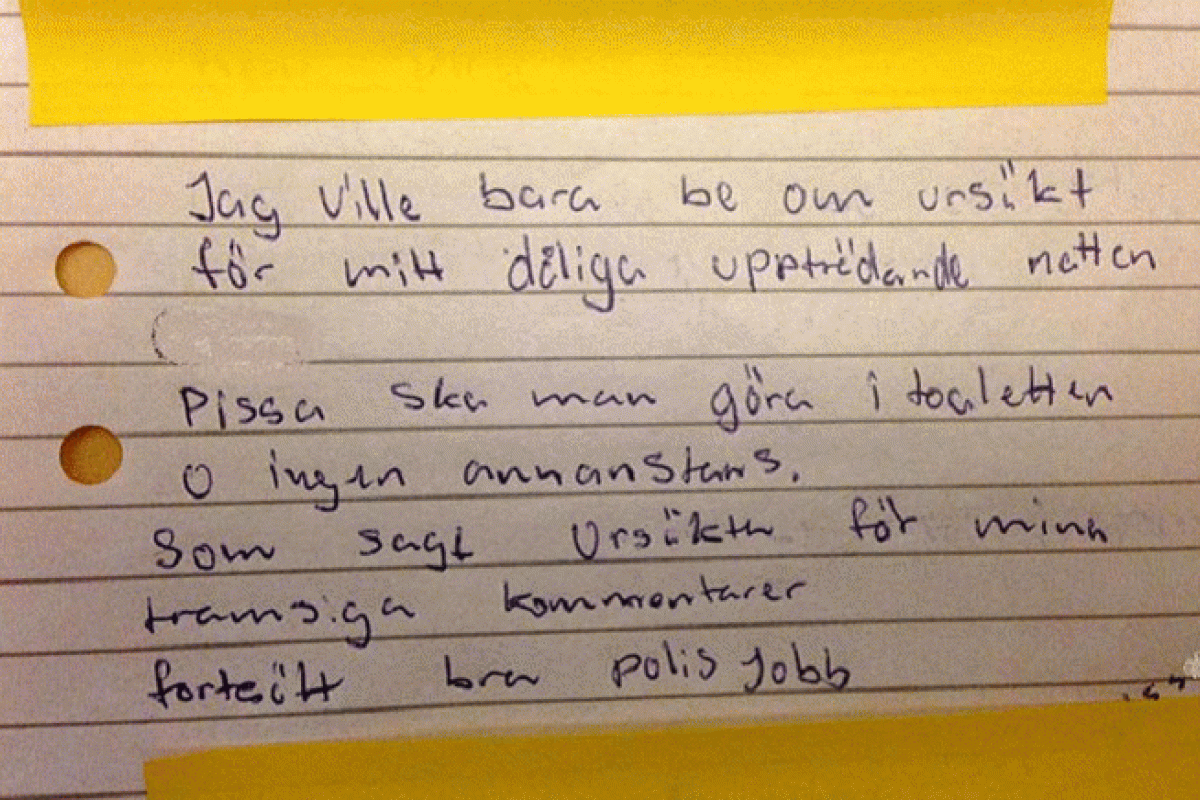 Jag Ville bara be om ursäkt
för mitt dåliga uppträdande natten
Pissa ska man göra i toaletten
o ingen annanstans.
Som sagt Ursäkta för mina
tramsiga kommentarer
fortsätt bra polis jobb